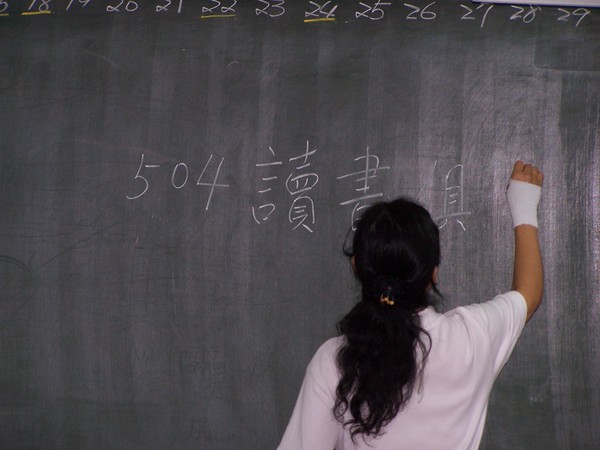 18 19 20 21 22 23 24 25 26 27 28 29
504 讀書俱